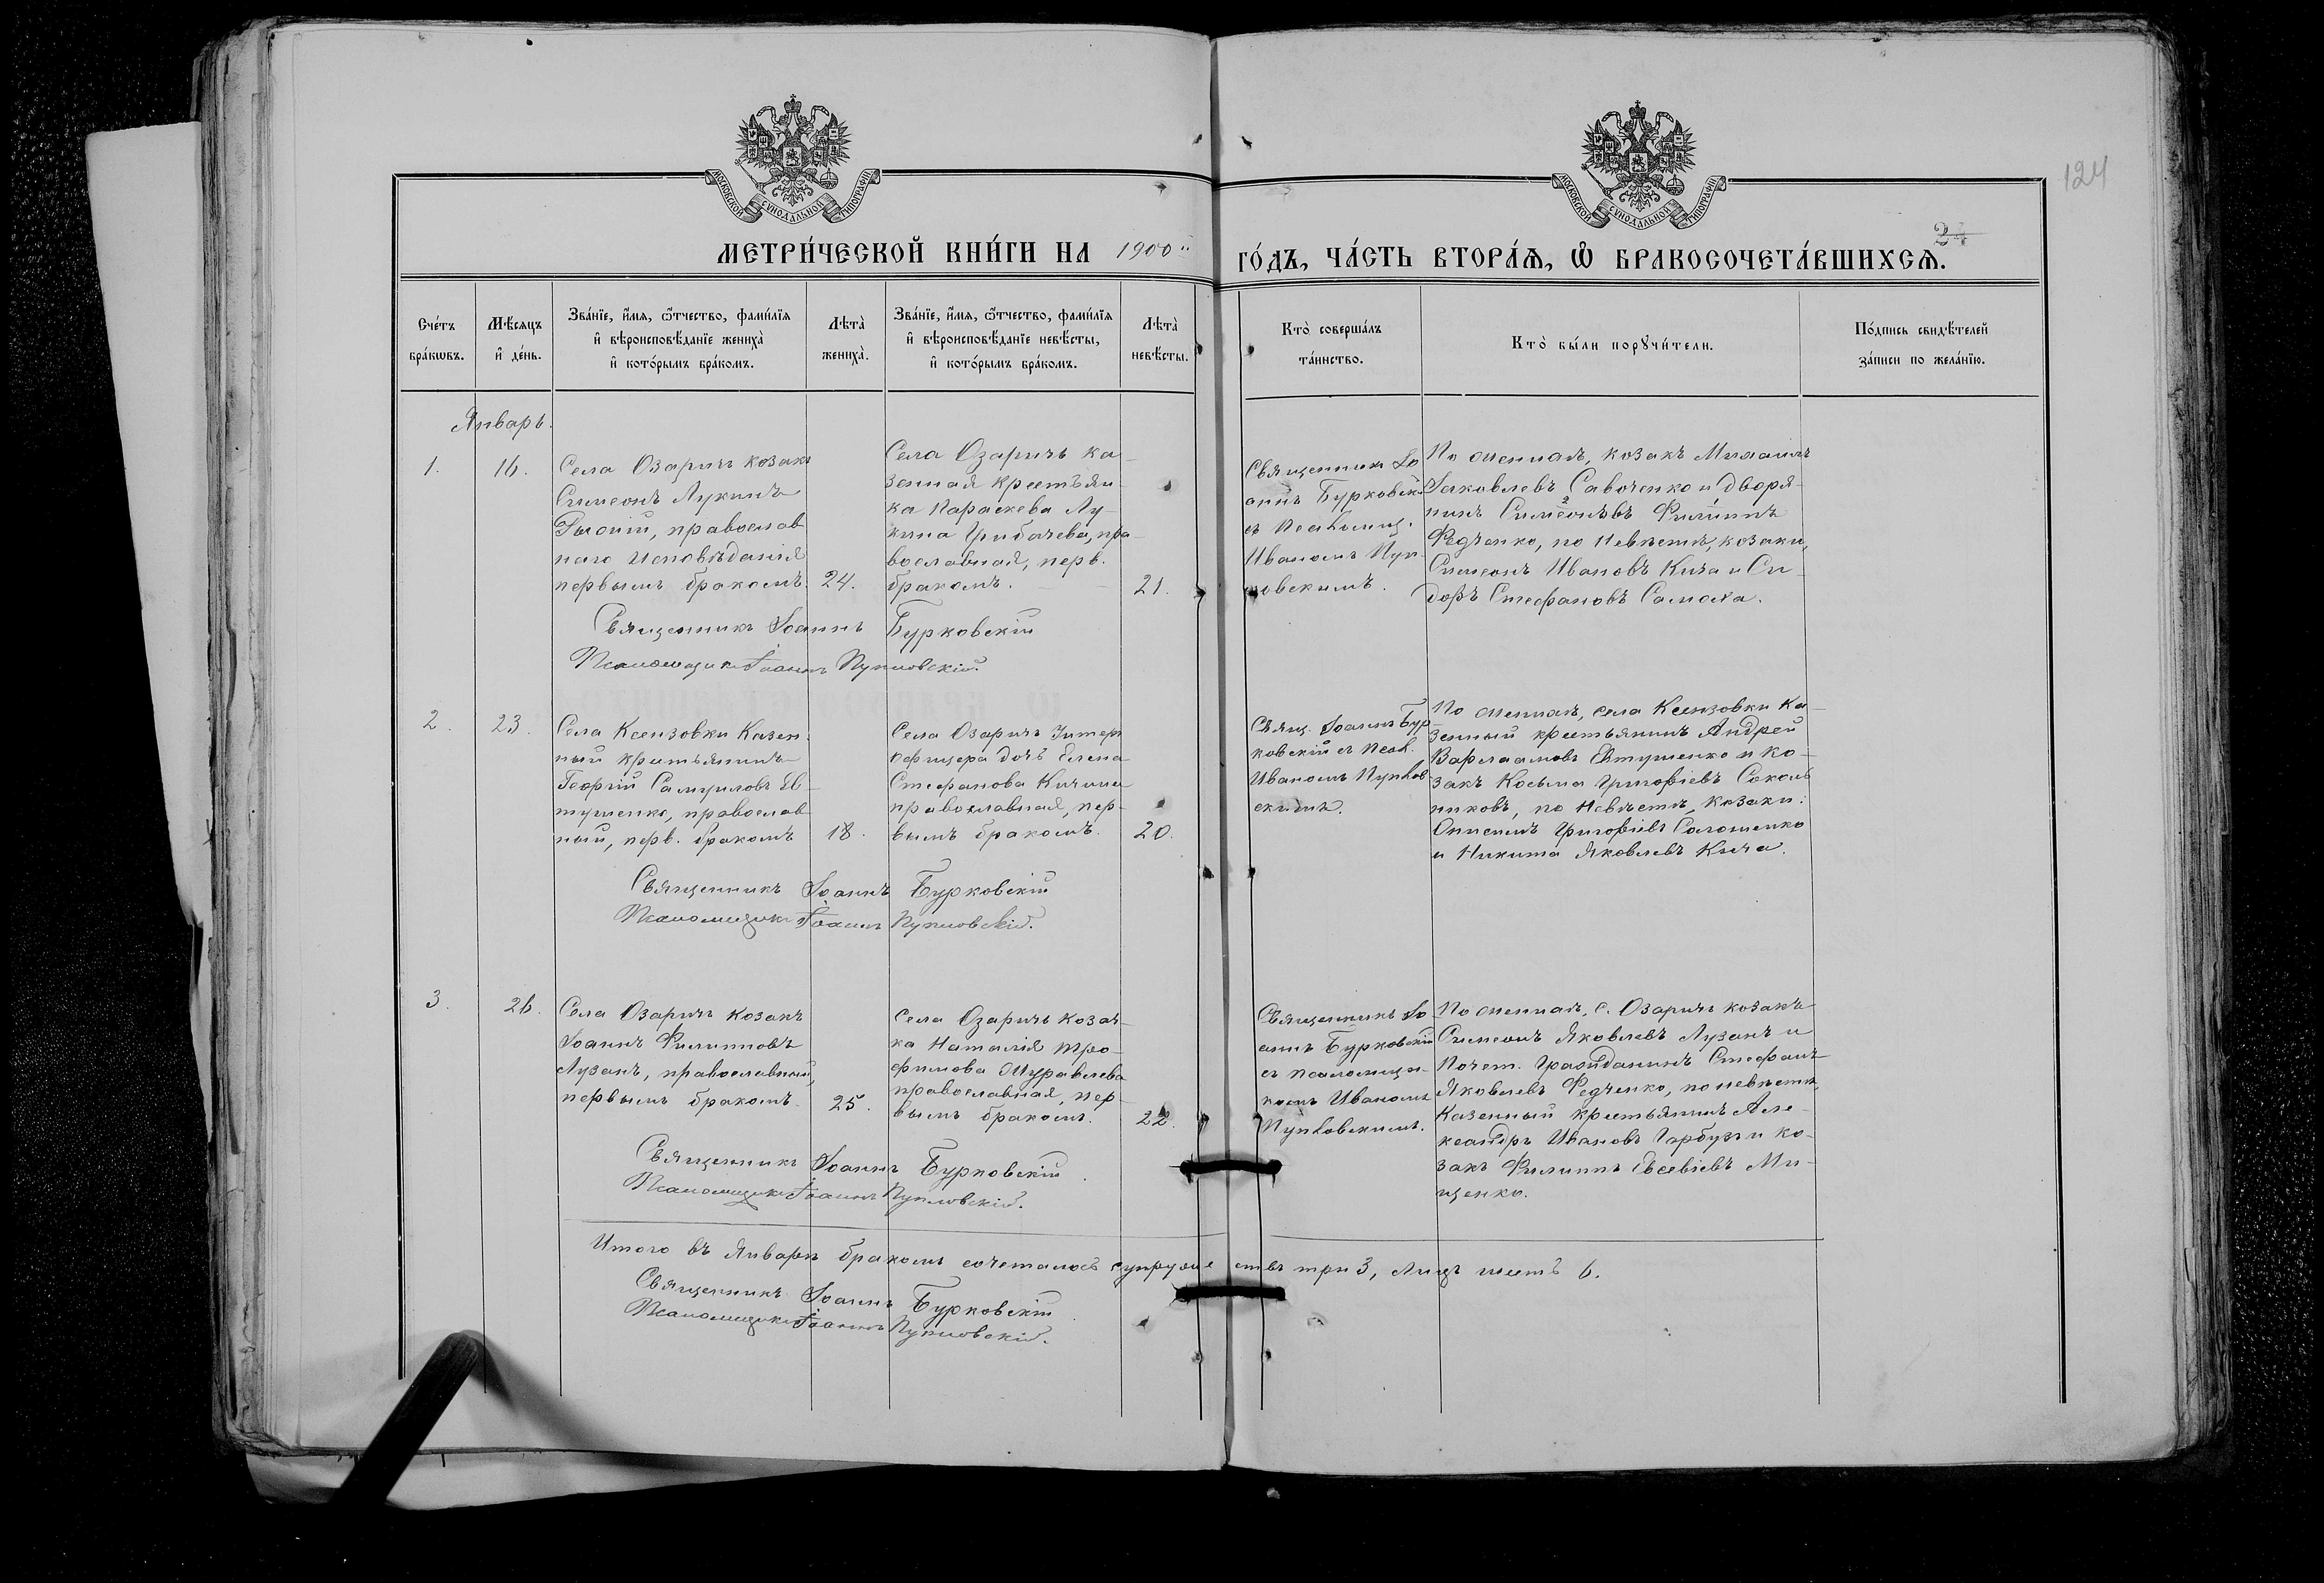 МОСКОВСКОЙ СѴНОДАЛЬНОЙ ТИПОГРАФІИ
МОСКОВСКОЙ СѴНОДАЛЬНОЙ ТИПОГРАФІИ
124
24
МЕТРИ́ЧЕСКОЙ КНИ́ГИ НА 1900 й
ГО́ДЪ, ЧА́СТЬ ВТОРА́Ѧ, Ѽ БРАКОСОЧЕТА́ВШИХСѦ.
Сче́тъ
бра́кѡвъ.
Мѣ́сяцъ
и҆ де́нь.
Зва́нїе, и҆́мя, ѻ҆́тчество, фами́лїя
и҆ вѣроисповѣ́данїе жениха̀
и҆ кото́рымъ бра́комъ.
Лѣта̀
жениха̀.
Зва́нїе, и҆́мя, ѻ҆́тчество, фами́лїя
и҆ вѣроисповѣ́данїе невѣ́сты,
и҆ кото́рымъ бра́комъ.
Лѣта̀
невѣ́сты.
Кто̀ соверша́лъ
та́инство.
Кто̀ бы́ли порꙋчи́тели.
По́дпись свидѣ́телей
за́писи по жела́нїю.
Январь.
1.
16.
Села Озаричъ козакъ
Симеонъ Лукинъ
православ
наго исповѣданія
первымъ бракомъ.
24.
Села Озаричъ ка-
зенная крестьян-
ка Параскева Лу-
кина Грибачева, пра-
вославная, перв.
бракомъ.
21.
Священникъ Іо
аннъ Бурковскій
съ псаломщ.
Иваномъ Пуп-
ловскимъ.
По женихѣ, козакъ Михаилъ
Іаковлевъ Савоченко и дворя-
нинъ Симеоновъ Филиппъ
Федченко, по невѣстѣ, козаки,
Симеонъ Ивановъ Кича и Си-
доръ Стефановъ Самоха.
Священникъ Іоаннъ Бурковскій
Псаломщикъ Іоаннъ Пупловскій.
2.
23.
Села Ксензовки Казен-
ный крестьянинъ
Георгій Самуиловъ Ев-
тушенко, православ
ный, перв. бракомъ
18.
Села Озаричъ Унтеръ
офицера дочь Елена
Стефанова Кичина
православная, пер-
вымъ бракомъ.
20.
Свящ. Іоаннъ Бур
ковскій съ псал.
Иваномъ Пуплов
скимъ.
По женихѣ, села Ксензовки ка-
зенный крестьянинъ Андрей
Варлаамовъ Евтушенко и ко-
закъ Косьма Григоріевъ Соколь
никовъ, по невѣстѣ, козаки:
Онисимъ Григоріевъ Солошенко
и Никита Яковлевъ Кича.
Священникъ Іоаннъ Бурковскій
Псаломщикъ Іоаннъ Пупловскій.
3.
26.
Села Озаричъ козакъ
Іоаннъ Филипповъ
Лузанъ, православный,
первымъ бракомъ.
25.
Села Озаричъ козач-
ка Наталія Тро-
фимова Журавлева
православная, пер-
вымъ бракомъ.
22.
Священникъ Іо
аннъ Бурковскій
съ псаломщи-
комъ Иваномъ
Пупловскимъ.
По женихѣ, с. Озаричъ козакъ
Симеонъ Яковлевъ Лузанъ и
Почет. Гражданинъ Стефанъ
Яковлевъ Федченко, по невѣстѣ,
Казенный крестьянинъ Але-
ксандръ Ивановъ Гарбузъ и ко-
закъ Филиппъ Евсевіевъ Ми-
щенко.
Священникъ Іоаннъ Бурковскій
Псаломщикъ Іоаннъ Пупловскій.
Итого въ Январѣ бракомъ сочеталось супружествъ три 3, лицъ шесть 6.
Священникъ Іоаннъ Бурковскій
Псаломщикъ Іоаннъ Пупловскій.